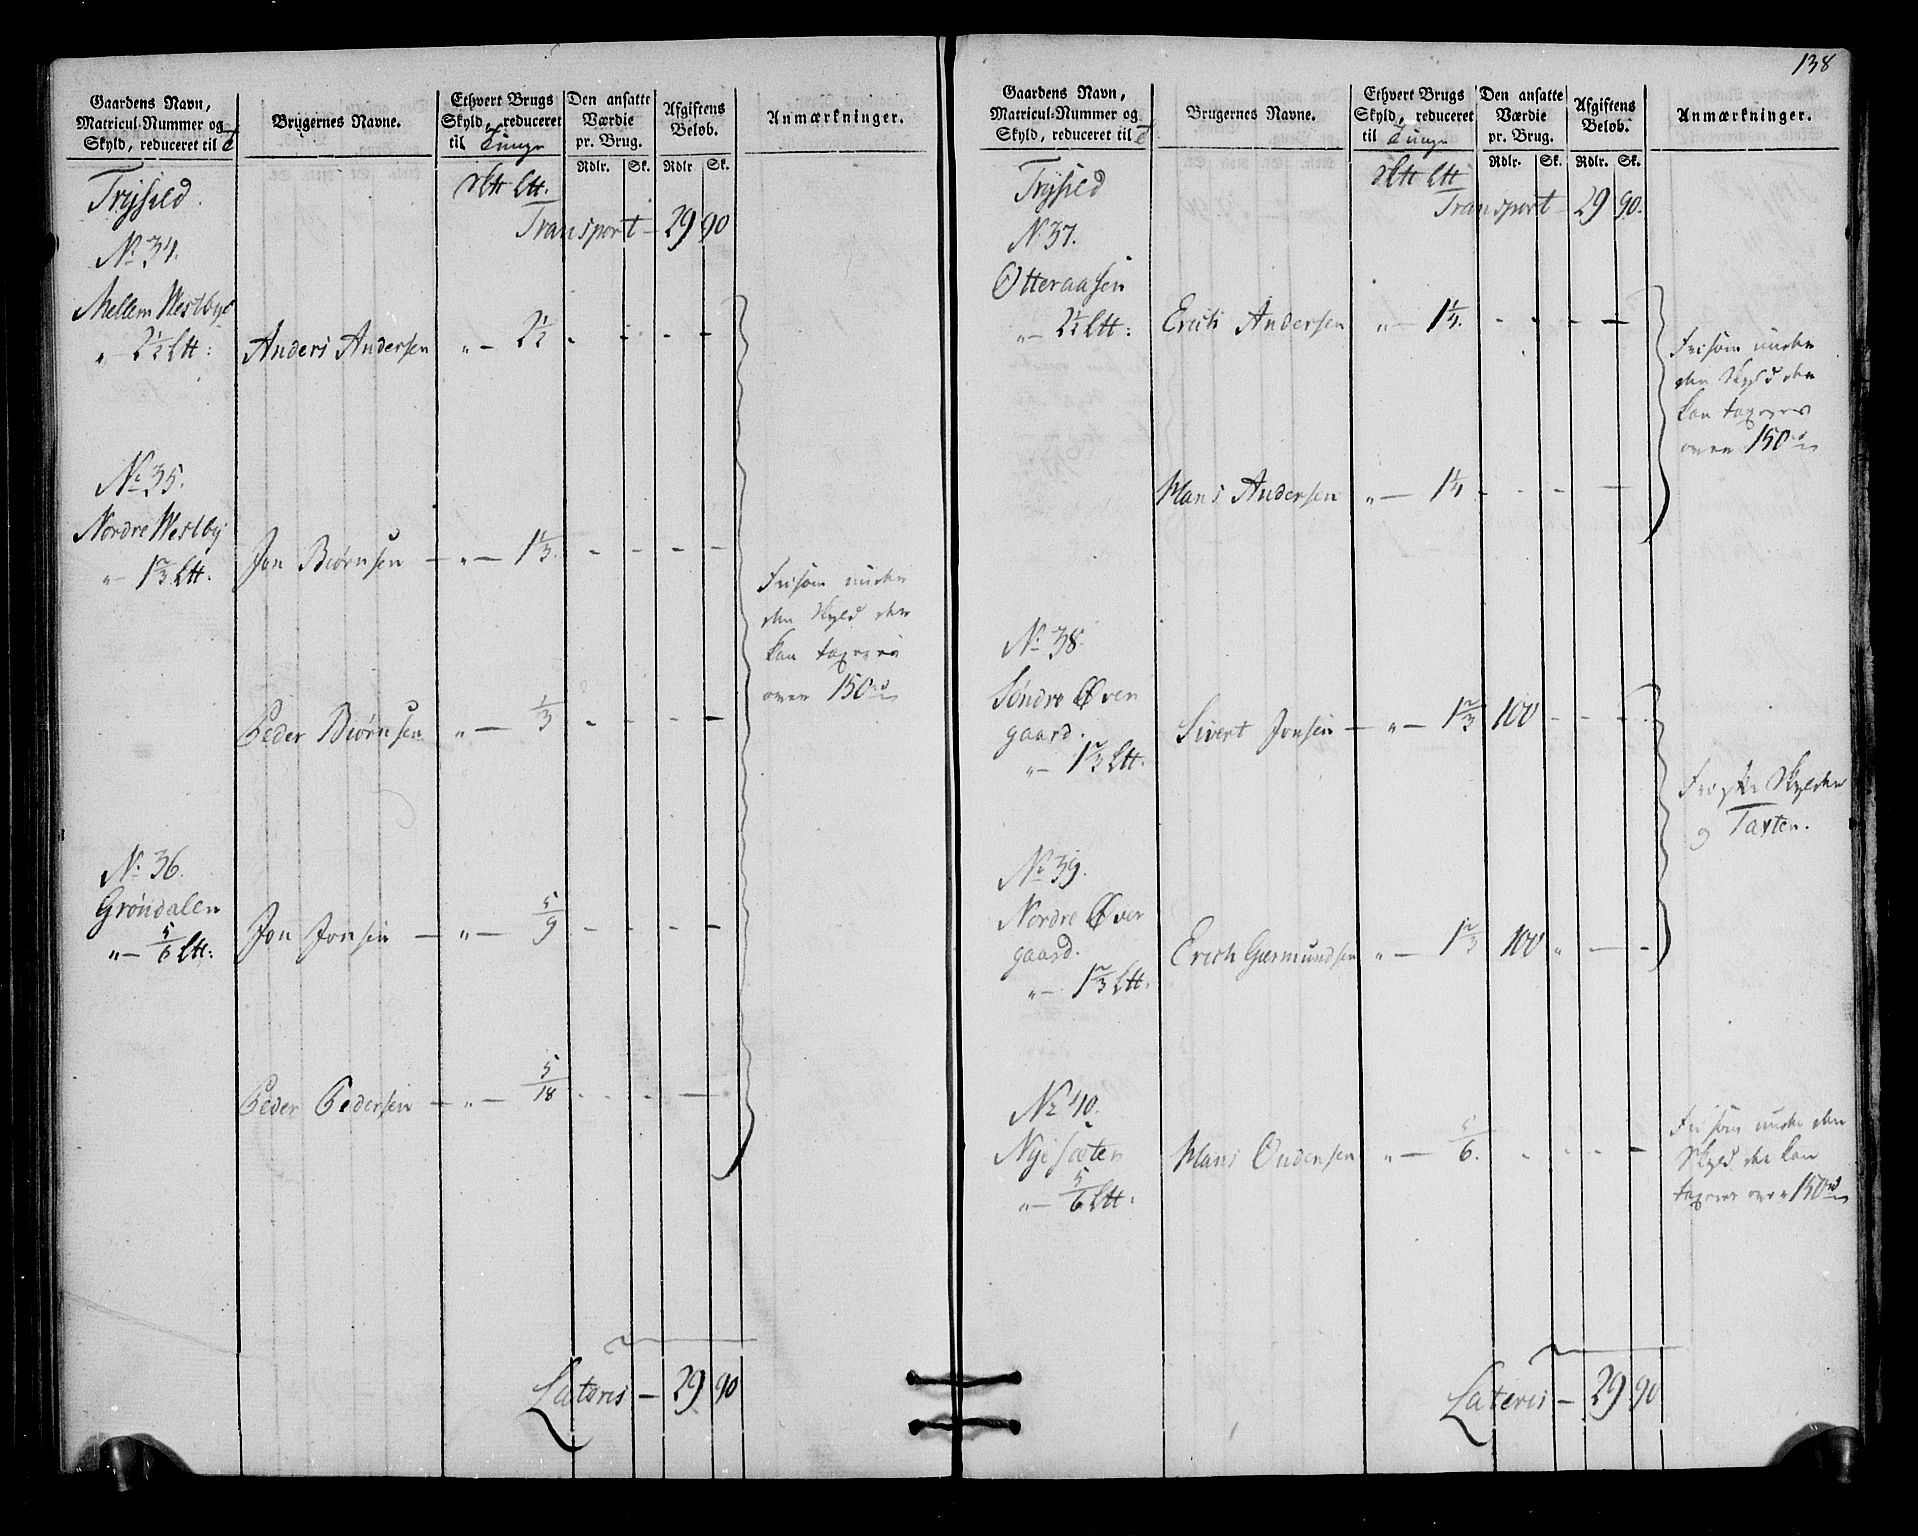 138
Gaardens Navn,
Matricul-Nummer og
Skyld, reduceret til
Brugernes Navne.
Ethvert Brugs
Skyld, reduceret
til Tunge
Den ansatte
Værdie
pr. Brug.
Rdlr. Sk.
Afgiftens
Beløb.
Rdlr Sk.
Anmærkninger.
Trysild.
Transport — 29 90
No 34.
Mellem Westbye
" — 2½ Ltt: Anders Andersen " — 2½ - - - -
No 35.
Nordre Westby
" — 1⅔ Ltt. Jon Biørnsen — " — 1⅓. - - - -
Fri som under
den Skyld der
kan taxeres
over 150 rd
Peder Biørnsen " — ⅓ - - - -
No 36.
Grøndalen
" — 5/6 Ltt: Jon Jonsen — " — 5/9 - - - -
Peder Pedersen — " — 5/18 - - - —
Lateris — 29 90
Gaardens Navn,
Matricul-Nummer og
Skyld, reduceret til
Brugernes Navne.
Ethvert Brugs
Skyld, reduceret
til Tunge
Den ansatte
Værdie
pr. Brug.
Rdlr. Sk.
Afgiftens
Beløb.
Rdlr. Sk.
Anmærkninger.
Trysild
Transport — 29 90.
No 37.
Otteraasen
" — 2½ Ltt: Erich Andersen " — 1¼. - - - —
Fri som under
den Skyld der
kan taxeres
over 150 rd
Hans Andersen " — 1¼ - - - —
No 38.
Søndre Øver
gaard.
" — 1⅔ Ltt. Sivert Jonsen — " — 1⅔ 100 - - -
Skylder
og Taxten.
No 39.
Nordre Øver
gaard.
" — 1⅔ Ltt. Erich Giermundsen " — 1⅔ 100 " — -
No 40.
Nye Sæter
" — 5/6 Ltt: Hans Endersen " — 5/6. - - - -
Fri som under den
Skyld der kan
taxeres over 150 rd
Lateris — 29 90